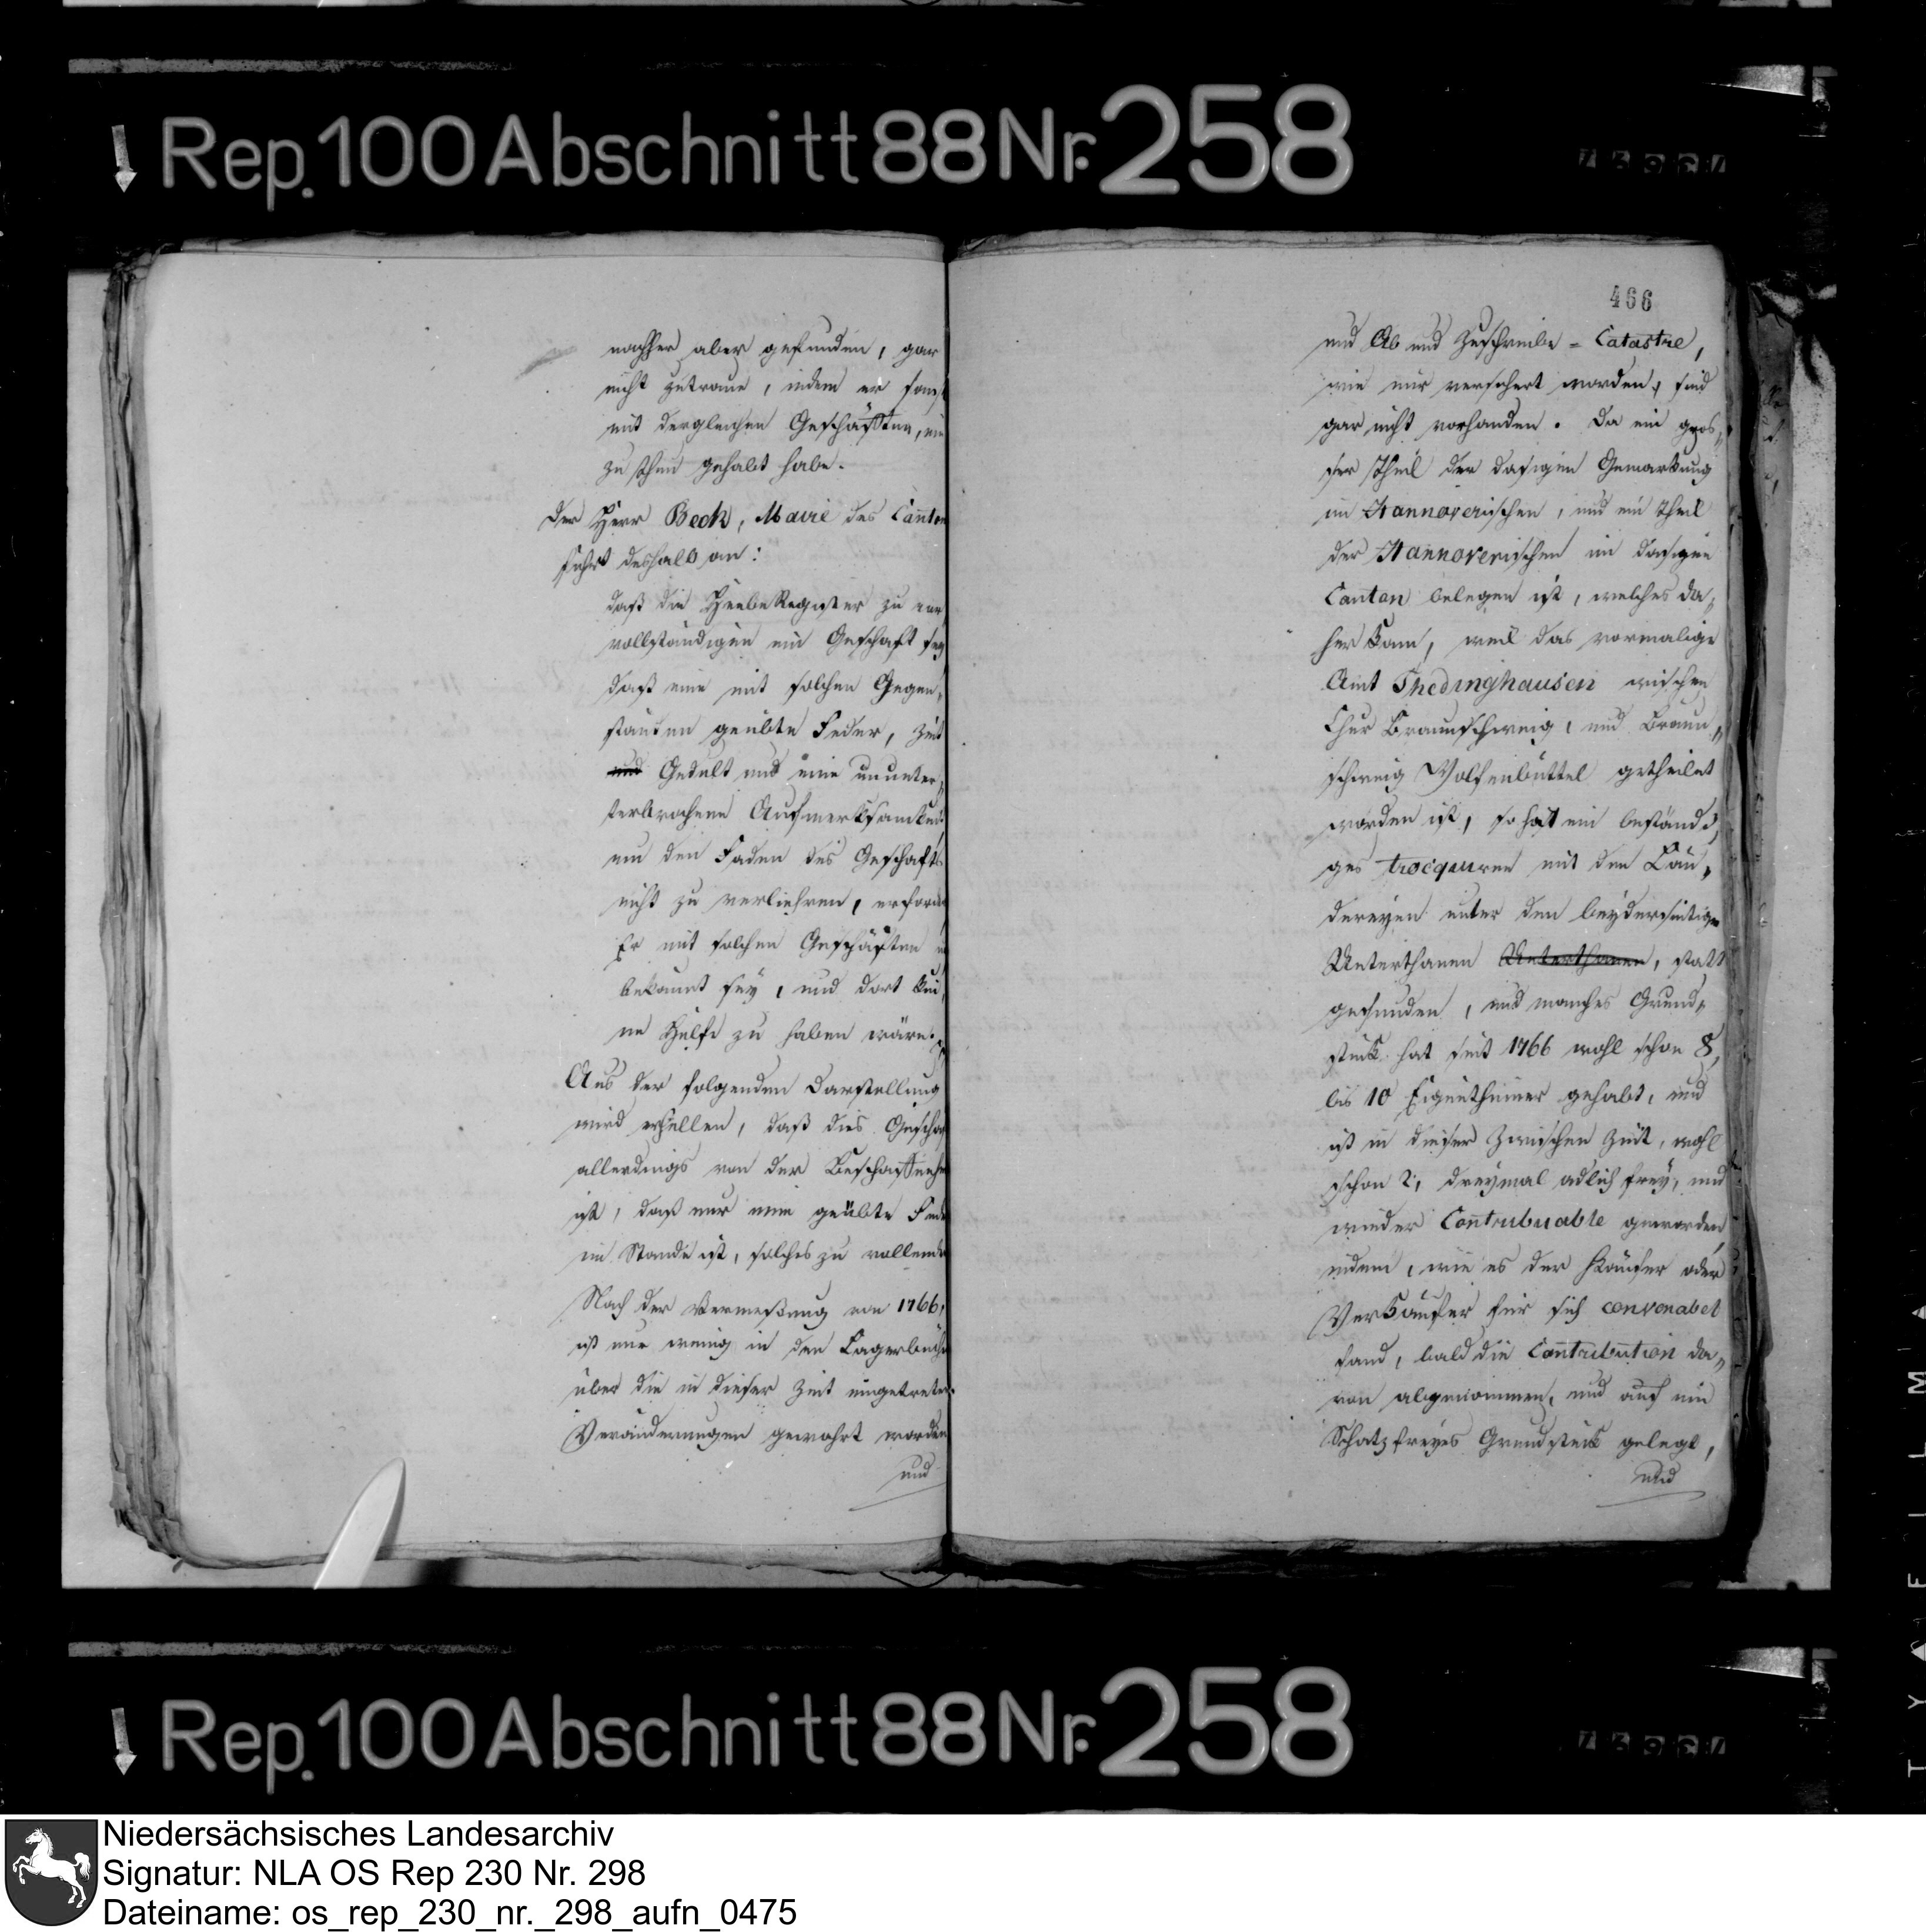 Rep. 100 Abschnitt 88 Nr. 258
nachher aber gefunden, gar
nicht zutraue, indem er sonst
mit dergleichen Geschäfften, nie
zu thun gehabt habe.
Der Herr Beck, Maire des Canton
führt deshalb an:
daß die HeebeRegister zu ver
vollständigen ein Geschäft sey
daß eine mit solchen Gegen„
ständen geübte Feder, Zeit
und Gedult und eine ununter„
terbrochene Aufmerksamkeit
um den Faden des Geschäfts
nicht zu verliehren, erfordre
Er mit solchen Geschäften
bekannt sey, und dort kei„
ne Hülfe zu haben wäre.
Aus der folgenden Darstellung
wird erhellen, daß dies Geschäf
allerdings von der Beschaffenhe
ist, daß nur eine geübte Fede
im Stande ist, solches zu vollende
Nach der Vermeßung von 1766,
ist nur wenig in den Lagerbüche
über die in dieser Zeit eingetreten
Veränderungen gewahrt worden
und
466
und Ab und Zuschreibe = Catastre,
wie mir versichert worden, sind
gar nicht vorhanden. Da ein gros„
ser Theil der dasigen Gemarkung
im Hannoverischen, und ein Theil
der Hannoverischen im dasigen
Canton belegen ist, welches da„
her kam, weil das vormalige
Amt Thedinghausen zwischen
Chur Braunschweig, und Braun„
schweig Wolfenbüttel getheilet
worden ist, so hat ein beständi„
ges trocquiren mit den Län„
dereyen unter den beyderseitigen
Unterthanen Unterthanen, statt
gefunden, und manches Grund„
stück hat seit 1766 wohl schon 8,
bis 10 Eigenthümer gehabt, und
ist in dieser Zwischen Zeit, wohl
schon 2, dreymal adlich frey, und
wieder Contribuable geworden,
indem, wie es der Käufer oder
Verkäufer für sich convenabel
fand, bald die Contribution da„
von abgenommen, und auf ein
Schatzfreyes Grundstück gelegt,
und
Rep. 100 Abschnitt 88 Nr. 258
Niedersächsisches Landesarchiv
Signatur: NLA OS Rep 230 Nr. 298
Dateiname: os_rep_230_nr._298_aufn_0475